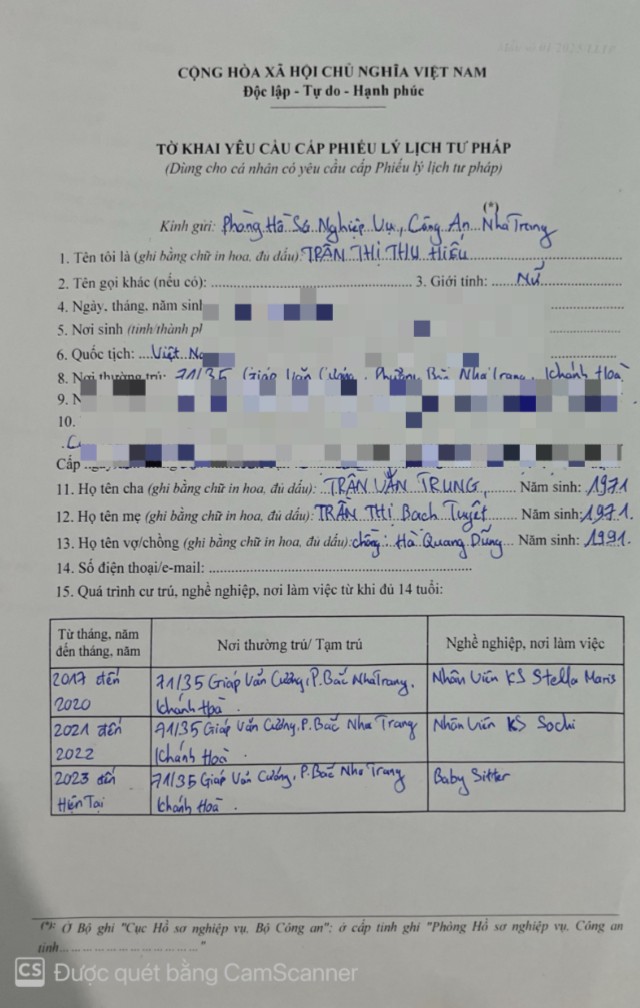 Mẫu số 01/2025/LLTP
CỘNG HÒA XÃ HỘI CHỦ NGHĨA VIỆT NAM
Độc lập - Tự do - Hạnh phúc
TỜ KHAI YÊU CẦU CẤP PHIẾU LÝ LỊCH TƯ PHÁP
(Dùng cho cá nhân có yêu cầu cấp Phiếu lý lịch tư pháp)
Kính gửi: Phòng Hồ Sơ Nghiệp Vụ, Công An Nha Trang (*)
1. Tên tôi là (ghi bằng chữ in hoa, đủ dấu): TRẦN THỊ THU HIẾU
2. Tên gọi khác (nếu có): 3. Giới tính: Nữ
4. Ngày, tháng, năm sinh
5. Nơi sinh (tỉnh/thành ph
6. Quốc tịch: Việt Na
8. Nơi thường trú: 71/35 Giáp Văn Cương, Phường Bắc Nha Trang, Khánh Hoà
9. N
10.
Cấp
11. Họ tên cha (ghi bằng chữ in hoa, đủ dấu): TRẦN VĂN TRUNG Năm sinh: 1971
12. Họ tên mẹ (ghi bằng chữ in hoa, đủ dấu): TRẦN THỊ Bạch Tuyết Năm sinh: 1971.
13. Họ tên vợ/chồng (ghi bằng chữ in hoa, đủ dấu): chồng: Hà Quang Dũng Năm sinh: 1991.
14. Số điện thoại/e-mail:
15. Quá trình cư trú, nghề nghiệp, nơi làm việc từ khi đủ 14 tuổi:
Từ tháng, năm đến tháng, năm
Nơi thường trú/ Tạm trú
Nghề nghiệp, nơi làm việc
2017 đến 2020
71/35 Giáp Văn Cương, P. Bắc Nha Trang, Khánh Hoà.
Nhân Viên KS Stella Maris
2021 đến 2022
71/35 Giáp Văn Cương, P. Bắc Nha Trang Khánh Hoà.
Nhân Viên KS Sochi
2023 đến Hiện Tại
71/35 Giáp Văn Cương, P. Bắc Nha Trang Khánh Hoà.
Baby Sitter
(*): Ở Bộ ghi "Cục Hồ sơ nghiệp vụ, Bộ Công an"; ở cấp tỉnh ghi "Phòng Hồ sơ nghiệp vụ, Công an
tỉnh........................"
CS Được quét bằng CamScanner